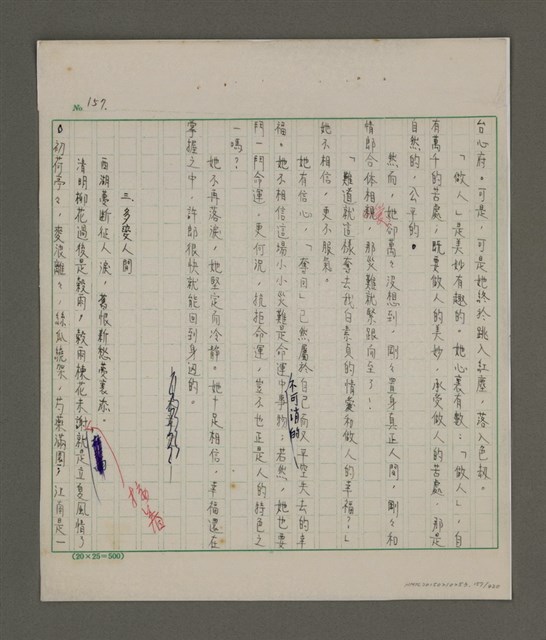 No 157.
台心府。可是，可是她終於跳入紅塵，落入色劫。
「做人」是美妙有趣的。她心裏有數：「做人」，自
有萬千的苦處；既要做人的美妙，承受做人的苦處，那是
自然的，公平的。
然而，她卻萬々沒想到，剛々置身真正人間，剛々和
情郎合体相親，那災難就緊跟而至了！
「難道就這樣奪去我白素貞的情愛和做人的幸福？」
她不相信，更不服氣。
她有信心，「奪回」已然屬於自己而又平空失去的幸
福。她不相信這場小小災難是命運中不可消的事物；若然，她也要
鬥一鬥命運，更何況，抗拒命運，豈不也正是人的特色之
一嗎？
她不再落淚，她堅定而冷靜。她十足相信，幸福還在
掌握之中，許郎很快就能回到身边的。
三、多姿人間
西湖夢斷征人淚，舊恨新愁夢裏尕。
清明柳花過後是穀雨，穀雨楝花未謝就是立夏風情了
。初荷亭々，麥浪離々，絲瓜繞架，芍藥滿園；江南是一
接着
(20×25=500)